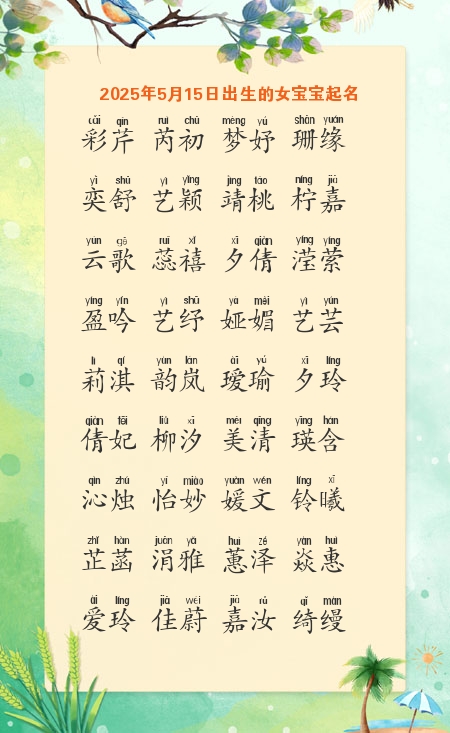 2025年5月15日出生的女宝宝起名
cǎi qín ruì chū mèng yú shān yuán
彩芹 芮初 梦妤 珊缘
yì shū yì yǐng jìng táo níng jiā
奕舒 艺颖 靖桃 柠嘉
yún gē ruǐ xǐ xī qiàn yíng yíng
云歌 蕊禧 夕倩 滢萦
yíng yín yì shū yà mèi yì yún
盈吟 艺纾 娅媚 艺芸
lì qí yùn lán ài yú xī líng
莉淇 韵岚 瑷瑜 夕玲
qiàn fēi liǔ xī měi qīng yīng hán
倩妃 柳汐 美清 瑛含
qìn zhú yí miào yuàn wén líng xī
沁烛 怡妙 媛文 铃曦
zhǐ hàn juān yǎ huì zé yàn huì
芷菡 涓雅 蕙泽 焱惠
ài líng jiā wèi jiā rǔ qǐ màn
爱玲 佳蔚 嘉汝 绮缦